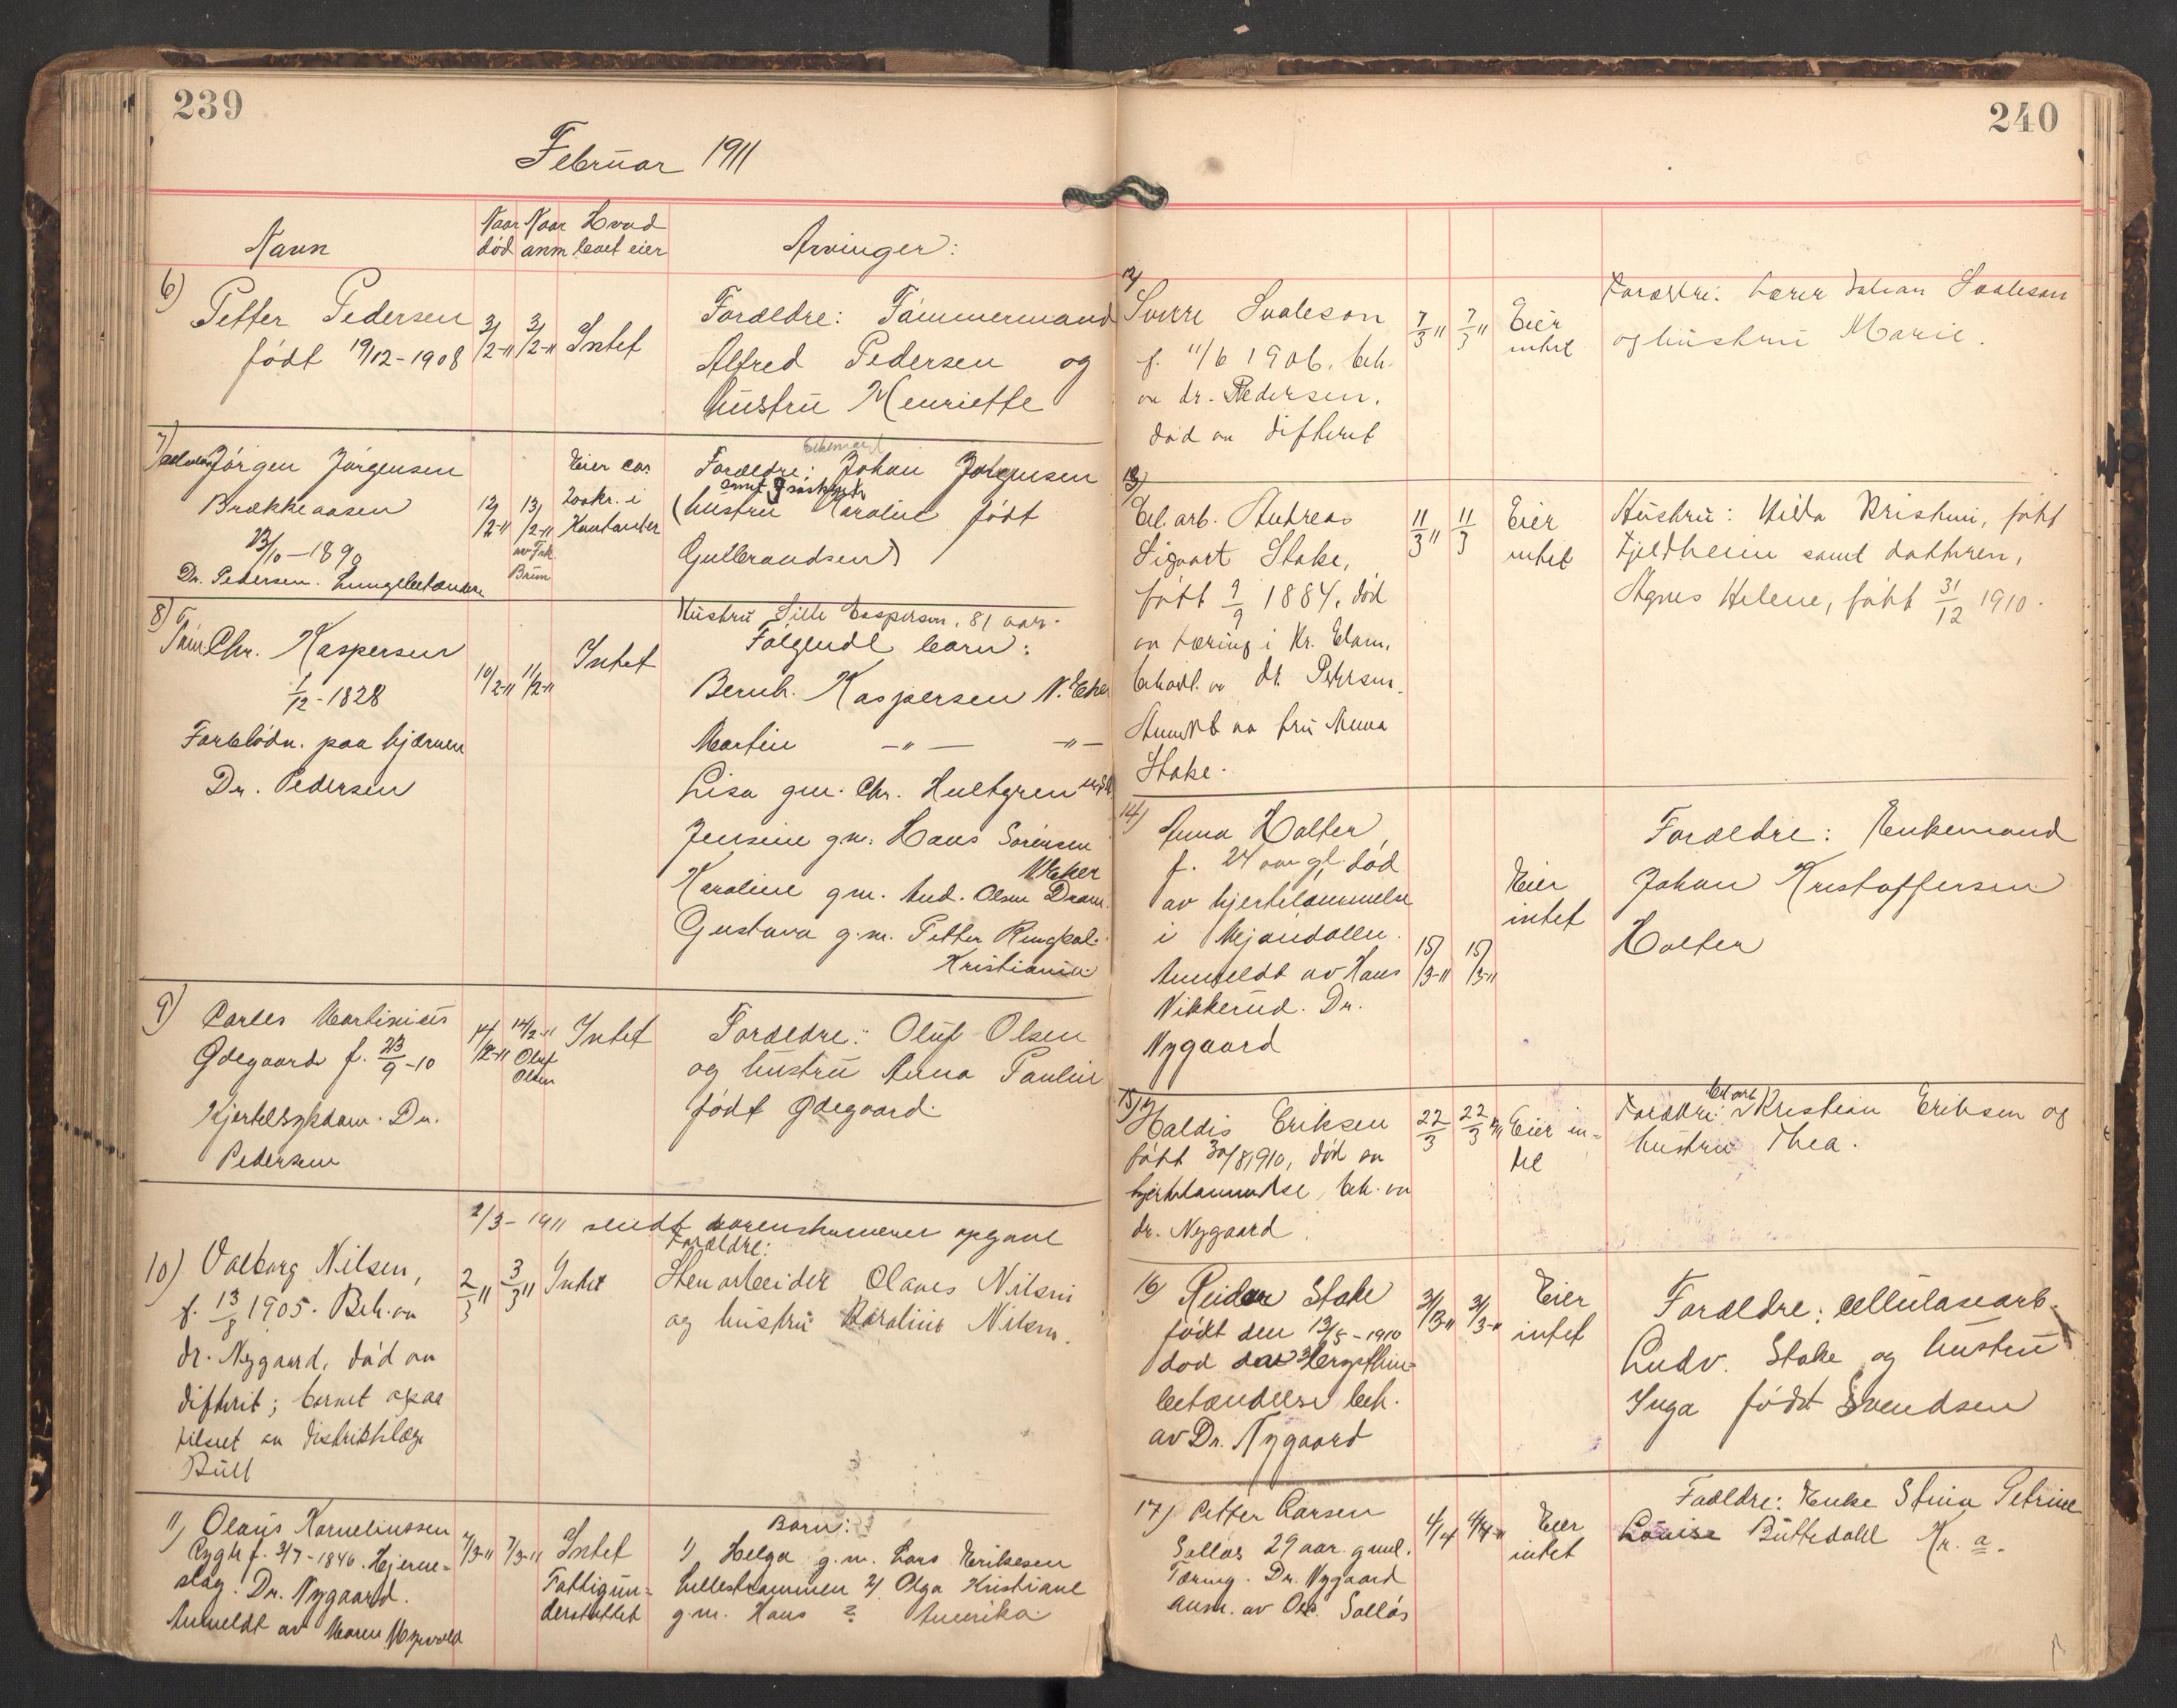 239
Februar 1911
Navn
Naar død
Naar anm
Hvad boet eier
Arvinger:
6)
Petter Pedersen
født 19/12-1908
3/2-11
3/2-11
Intet
Forældre: Tømmermand
Alfred Pedersen og
hustru Henriette
7)
Jørgen Jørgensen
Brækkeaasen
23/10-1890
Dr. Pedersen. Lungebetændelse
12/2-11
13/2-11
Eier ca.
200 kr. i
Kontanter
Forældre: Johan Jørgensen
(hustru Karoline født
Gulbrandsen)
8)
Chr. Kaspersen
1/12-1828
Forblødn. paa hjærnen
Dr. Pedersen
10/2-11
11/2-11
Intet
Hustru 81 aar.
Følgende børn:
Bernh. Kaspersen N. Eker
Martin -"- -"-
Lisa gm. Chr. Hultgren
Jensine gm. Hans Sørensen
N. Eker
Karoline gm. And. Olsen Dram.
Gustava g.m. Petter
Kristiania
9)
Carles Martinius
Ødegaard f. 23/9-10
Kjertelsykdom. Dr.
Pedersen
14/2-11
14/2-11
Oluf
Olsen
Intet
Forældre: Oluf Olsen
og hustru Anna Pauline
født Ødegaard.
2/3-1911 sendt sorenskriveren opgave
10) Valborg Nilsen,
f. 13/8 1905. Beh. av
dr. Nygaard, død av
difterit; barnet ogsaa
tilset av distriktslæge
Bull
2/3 11
3/3 11
Intet
Forældre:
Stenarbeider Olaves Nilsen
og hustru Karoline Nilsen.
11) Olaus Kornelinssen
f. 3/7-1846. Hjerne-
slag. Dr. Nygaard.
Anmeldt av Maren
7/3-11
7/3-11
Intet
Fattigun-
derstøttet
Børn:
1) Helga g.m. Lars Eriksen
Lillestrømmen 2) Olga Kristiane
g.m. Hans ? Amerika
240
12)
Sverre Svaleson
f. 11/6 1906. beh.
av dr. Pedersen.
død av difterit
7/3 11
7/3 11
Eier
intet
Forældre: Lærer Johan Svaleson
og hustru Marie.
13)
Cel. arb. Andreas
Sigvart Stake,
født 9/9 1884, død
av tæring i Kr.
behadl. av dr. Pedersen.
Anmeldt av fru Anna
Stake.
11/3 11
11/3
Eier
intet
Hustru: Hilda Kristine, født
Fjeldheim samt datteren,
Agnes Helene, født 31/12 1910.
14)
Anna Holter,
f. 24 aar gl. død
av hjertelammelse
i Mjøndalen.
Anmeldt av Hans
Nikkerud. Dr.
Nygaard
15/3-11
15/3-11
Eier
intet
Forældre: Enkemand
Johan Kristoffersen
Holter
15)
Haldis Eriksen
født 30/8 1910, død av
hjertelammelse, beh. av
dr. Nygaard.
22/3
22/3 11
Eier in-
tet
Forældre: Cel. arb. Kristian Eriksen og
hustru Thea.
16) Reidar Stake
født den 13/5-1910
død av
betændelse beh.
av Dr. Nygaard
31/3-11
31/3-11
Eier
intet
Forældre: cellulosearb.
Ludv. Stake og hustru
Inga født Svendsen
17) Petter Larsen
Sollos 29 aar gml.
Tæring. Dr. Nygaard
anm. av Ole Sollos
4/4
4/4-11
Eier
intet
Forældre: Enke Stina Petrine
Louise Buttedahl Kr. a.